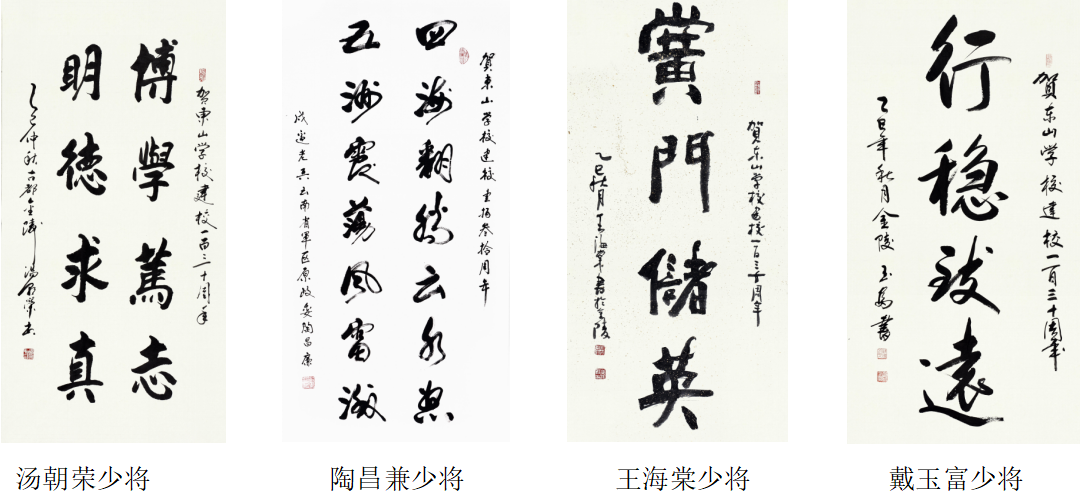 博學篤志
明德求真
贺東山学校建校一百三十周年
乙巳仲秋古都金陵 汤朝荣书
四海翻腾云水怒
五洲震荡风雷激
賀東山学校建校壹佰叁拾周年
戍边老兵云南省軍区原政委陶昌廉
黌門儲英
賀东山学校建校一百三十周年
乙巳秋月王海棠書於金陵
行穩致遠
賀东山学校建校一百三十周年
乙巳年秋月金陵玉富書
汤朝荣少将
陶昌兼少将
王海棠少将
戴玉富少将